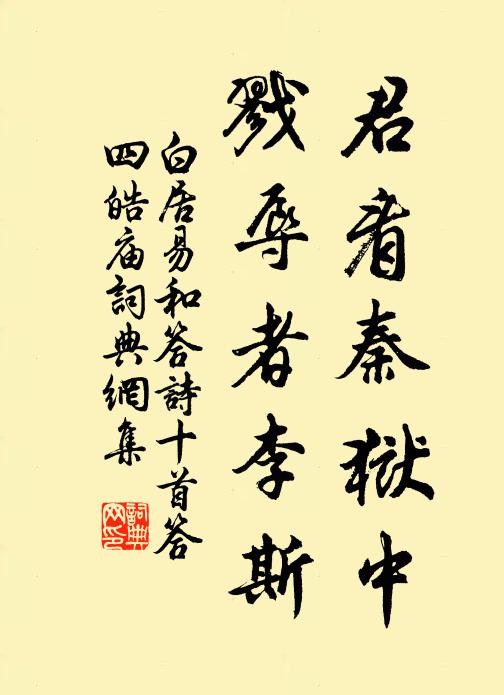 君看秦獄中
戮辱者李斯
白居易和答詩十首答
四皓庙詞典網集
詞典
网印